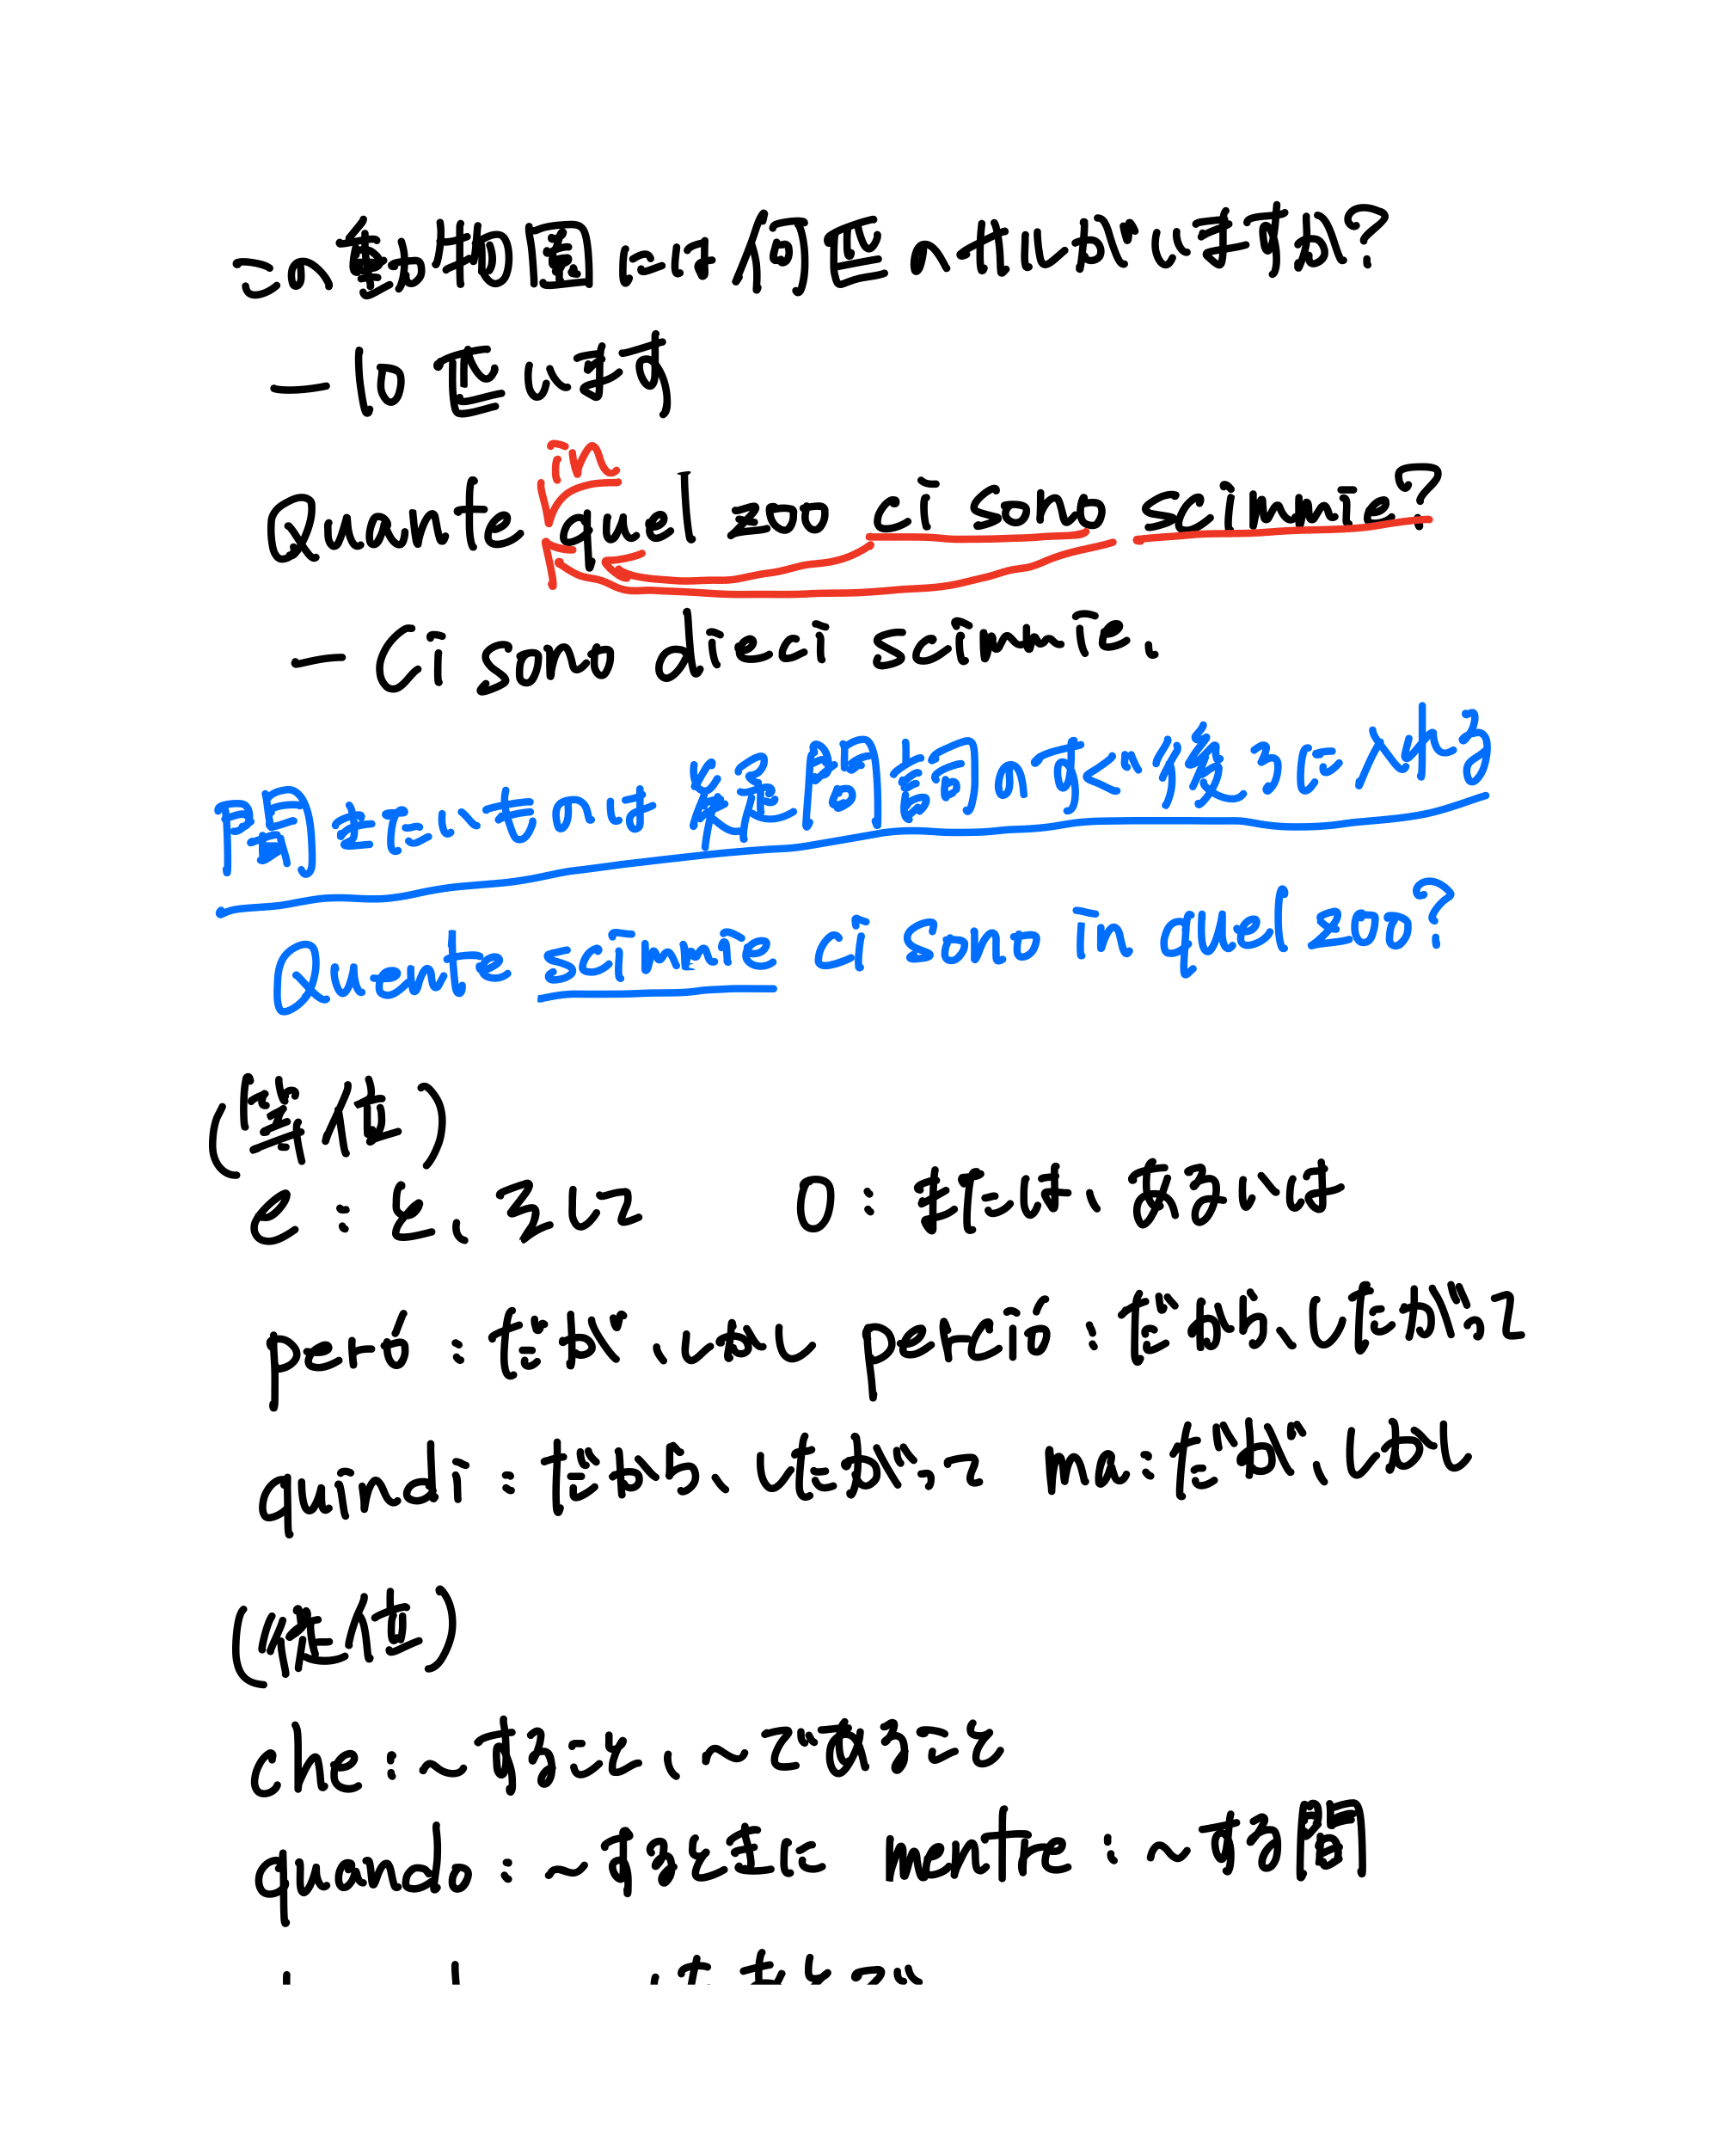 この動物園には何匹のサルがいますか?
— 10匹います
in
Quante quel zoo ci sono scimmie?
— Ci sono dieci scimmie.
聞きたいものは疑問詞のすぐ後ろに入れる
Quante scimmie ci sono in quel zoo?
(等位)
e : と、そして O : または、あるいは
peró : だが、しかし perció : だから、したがって
quindi : だから、したがって ma : だが、しかし
(従位)
che : ~すること、~であること
quando : ~するときに mentre : ~する間